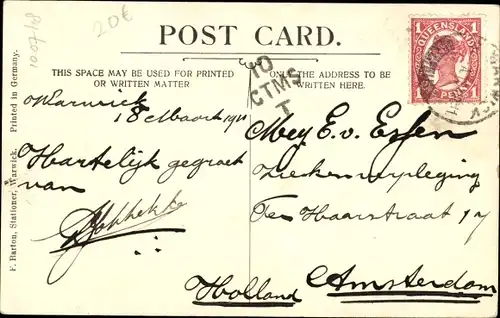 10.07/18
20€
POST CARD.
THIS SPACE MAY BE USED FOR PRINTED
OR WRITTEN MATTER
ONLY THE ADDRESS TO BE
WRITTEN HERE.
QUEENSLAND
1
1
PENNY
10
CTMS
T
Warwick
18 Maart 1911
Hartelijk gegroet
van
Mej E. v. Essen
Ziekenverpleging
Ter Haarstraat 17
Amsterdam
Holland
F. Barton, Stationer, Warwick. Printed in Germany.